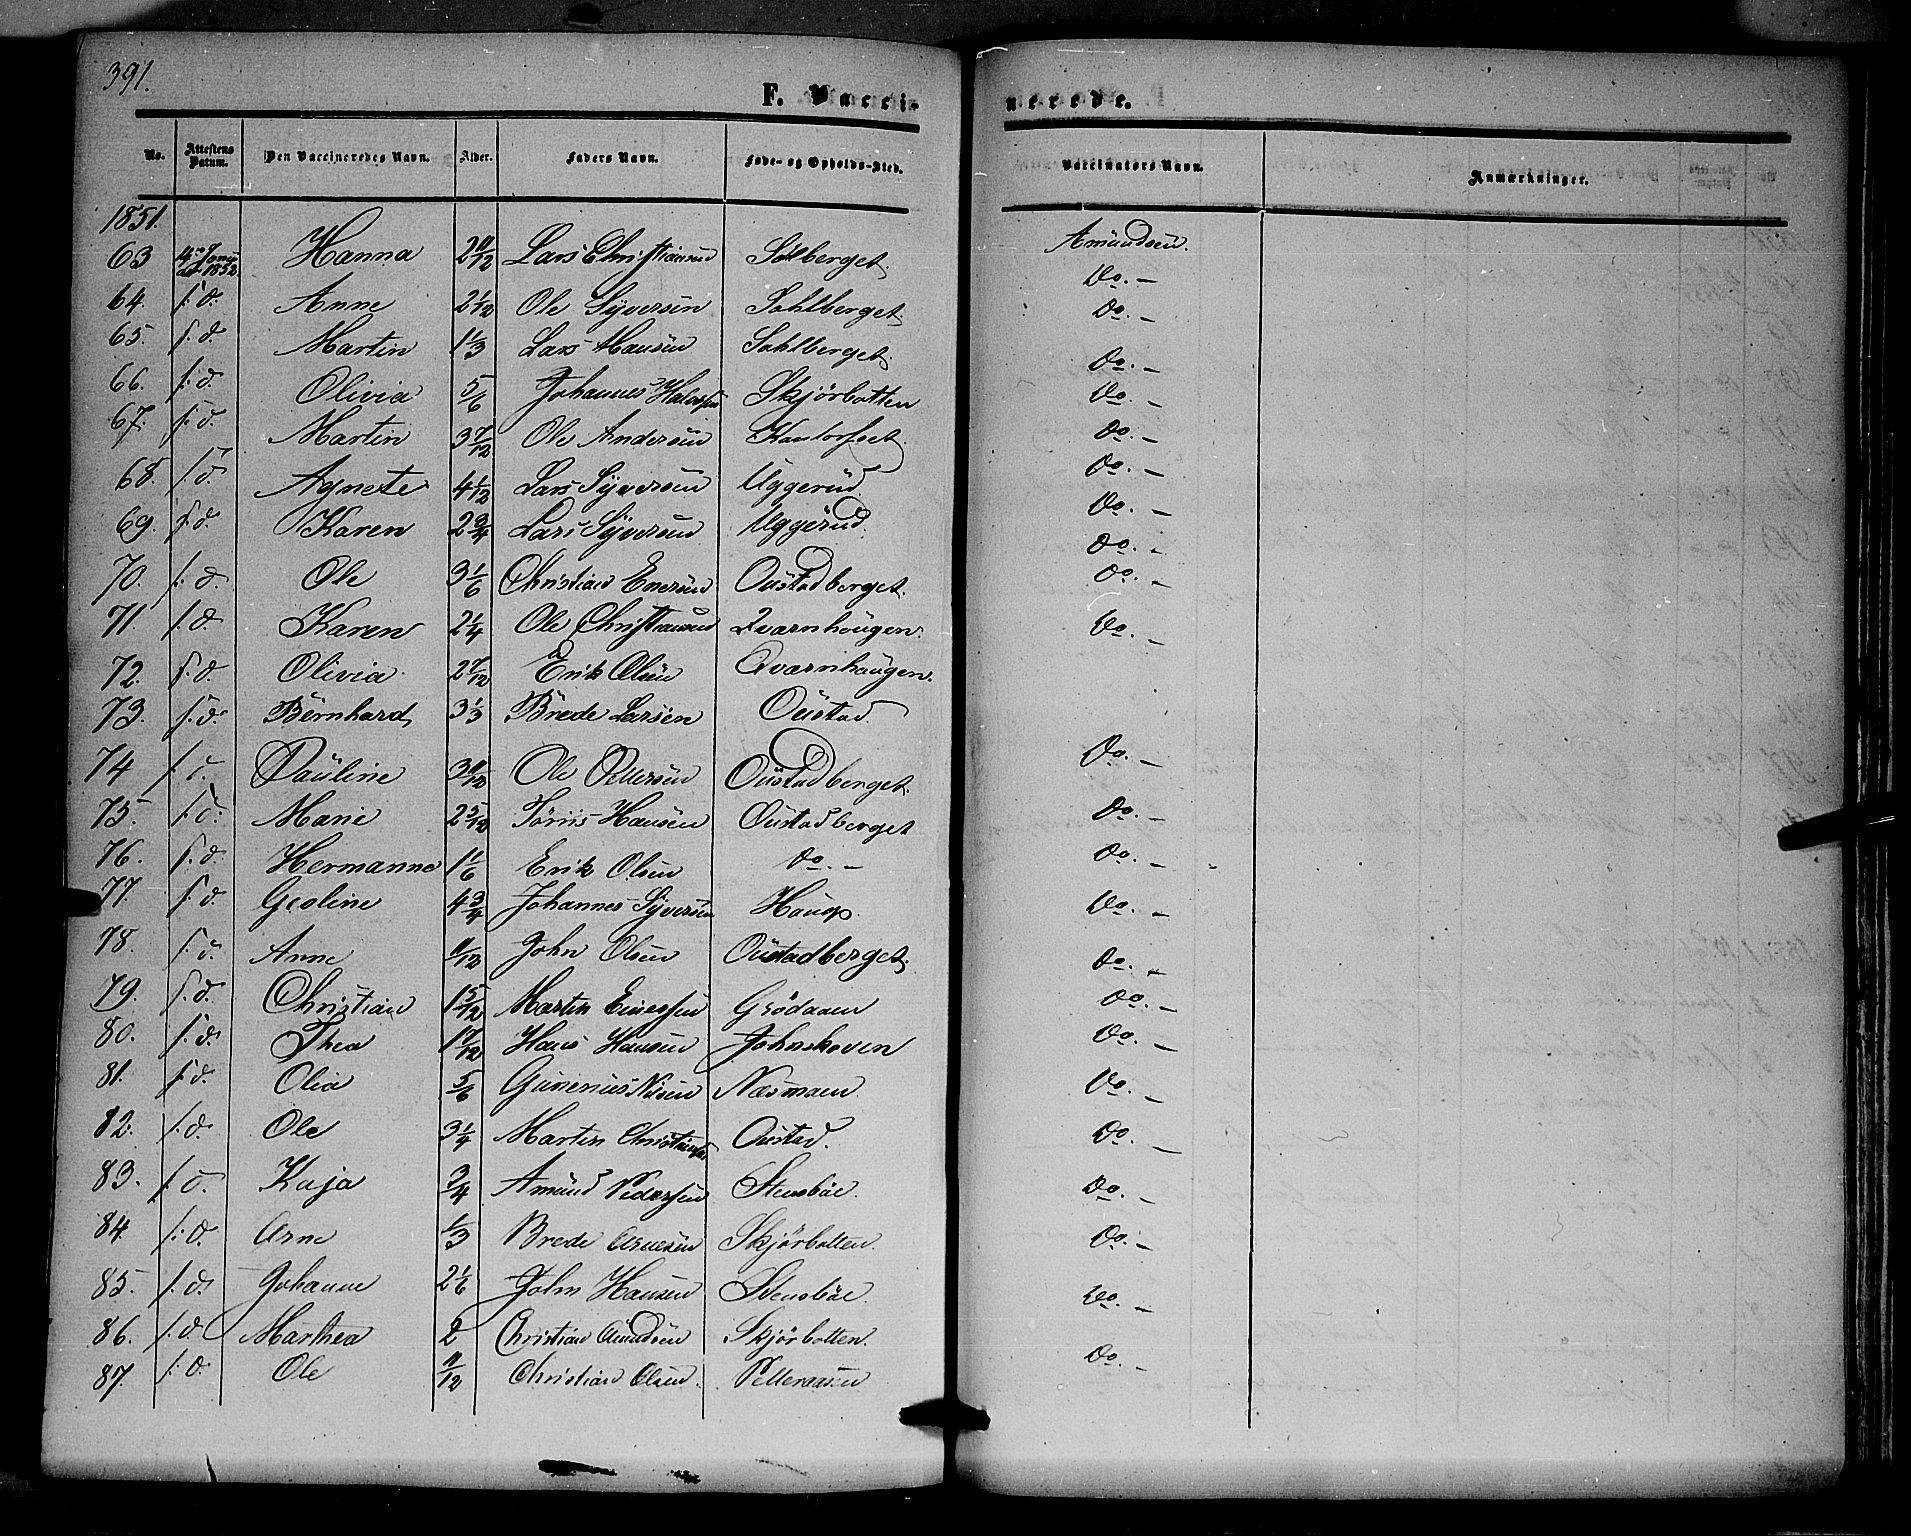 391.
F. Vacci- nerede.
No. Attestens Datum. Den Vaccineredes Navn. Alder. Faders Navn. Føde- og Opholds-Sted. Vaccinators Navn. Anmærkninger.
1851.
63 1852. Hanna 2 11/12 Lars Christiansen Solberget. Amundsen.
64. s. d. Anne 2 1/12 Ole Syversen Sohlberget Do. —
65. s. d. Martin 1 1/3 Lars Hansen Sohlberget. Do. —
66. s. d. Olivia 5/6 Johannes Skjörbotten Do. —
67. s. d. Martin 3 7/12 Ole Andersen Do. —
68. s. d. Agnete 4 1/12 Lars Syversen Uggerud. Do. —
69. s. d. Karen 2 3/4 Lars Syversen Uggerud. Do. —
70. s. d. Ole 3 1/6 Christian Enersen Oustadberget. Do. —
71. s. d. Karen 2 1/4 Ole Christiansen Qvarnhougen. Do. —
72. s. d. Olivia 2 7/12 Erik Olsen Qvarnhaugen. Do. —
73. s. d. Bernhard 3 1/3 Brede Larsen Oustad. Do. —
74 s. d. Pauline 3 11/12 Ole Pettersen Oustadberget. Do. —
75. s. d. Marie 2 5/12 Tørris Hansen Oustadberget Do. —
76. s. d. Hermanne 1 1/6 Erik Olsen Do. — Do. —
77. s. d. Geoline 4 3/4 Johannes Syversen Haug. Do. —
78. s. d. Anne 11/12 John Olsen Oustadberget. Do. —
79. s. d. Christian 1 5/12 Martin Einersen Grödaaen Do. —
80. s. d. Thea 1 7/12 Hans Hansen Johnskoven Do. —
81. s. d. Olia 5/6 Gunerius Nilsen Næsmoen. Do. —
82. s. d. Ole 3 1/4 Martin Christiansen Oustad. Do. —
83. s. d. Kaja 3/4 Amund Pedersen Stensböe. Do. —
84. s. d. Arne 1/3 Brede Arnesen Skjörbotten. Do. —
85. s. d. Johanne 2 1/6 John Hansen Stensböe. Do. —
86. s. d. Marthea 2 Christian Amundsen Skjörbotten. Do. —
87. s. d. Ole 11/12 Christian Olsen. Pelleraasen Do. —